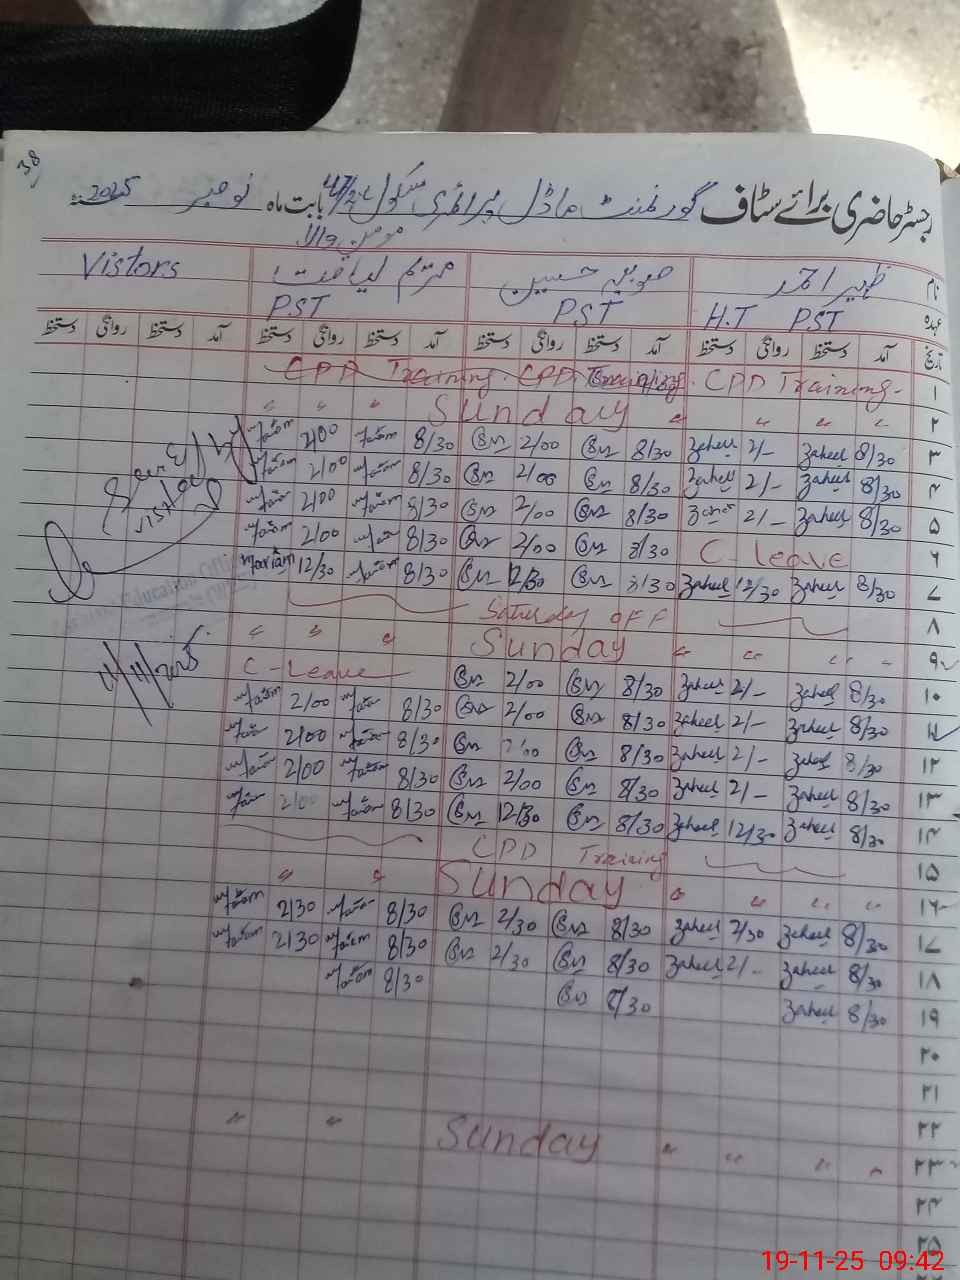 38
رجسٹر حاضری برائے سٹاف گورنمنٹ ماڈل پرائمری سکول 47/ بابت ماہ نومبر 2025ء
مومن والا
نام ظہیر احمد صوبیہ حسین مریم لیاقت Vistors
عہدہ H.T PST PST PST
تاریخ آمد دستخط روانگی دستخط آمد دستخط روانگی دستخط آمد دستخط روانگی دستخط آمد دستخط روانگی دستخط
۱ CPD Training. CPD Training. CPD Training.
۲ " " " " Sunday " " "
۳ 8/30 Zaheer 2/- Zaheer 8/30 2/00 8/30 Maram 2/00 Maram
۴ 8/30 Zaheer 2/- Zaheer 8/30 2/00 8/30 Maram 2/00 Maram
۵ 8/30 Zaheer 2/- 8/30 2/00 8/30 Maram 2/00 Maram
۶ C-Leave 8/30 2/00 8/30 Maram 2/00 Maram
۷ 8/30 Zaheer 12/30 Zaheer 8/30 12/30 8/30 Maram 12/30 Mariam
۸ Saturday OFF
۹ " " " " Sunday " " "
۱۰ 8/30 Zaheer 2/- Zaheer 8/30 2/00 C-Leave
۱۱ 8/30 Zaheer 2/- Zaheer 8/30 2/00 8/30 Maram 2/00 Maram
۱۲ 8/30 Zaheer 2/- Zaheer 8/30 2/00 8/30 Maram 2/00 Maram
۱۳ 8/30 Zaheer 2/- Zaheer 8/30 2/00 8/30 Maram 2/00 Maram
۱۴ 8/30 Zaheer 12/30 Zaheer 8/30 12/30 8/30 Maram 2/00 Maram
۱۵ CPD Training
۱۶ " " " " Sunday " "
۱۷ 8/30 Zaheer 2/30 Zaheer 8/30 2/30 8/30 Maram 2/30 Maram
۱۸ 8/30 Zaheer 2/- Zaheer 8/30 2/30 8/30 Maram 2/30 Maram
۱۹ 8/30 Zaheer 8/30 8/30 Maram
۲۰
۲۱
۲۲
۲۳ " " " " Sunday " "
۲۴
۲۵
11/11/2025
19-11-25 09:42